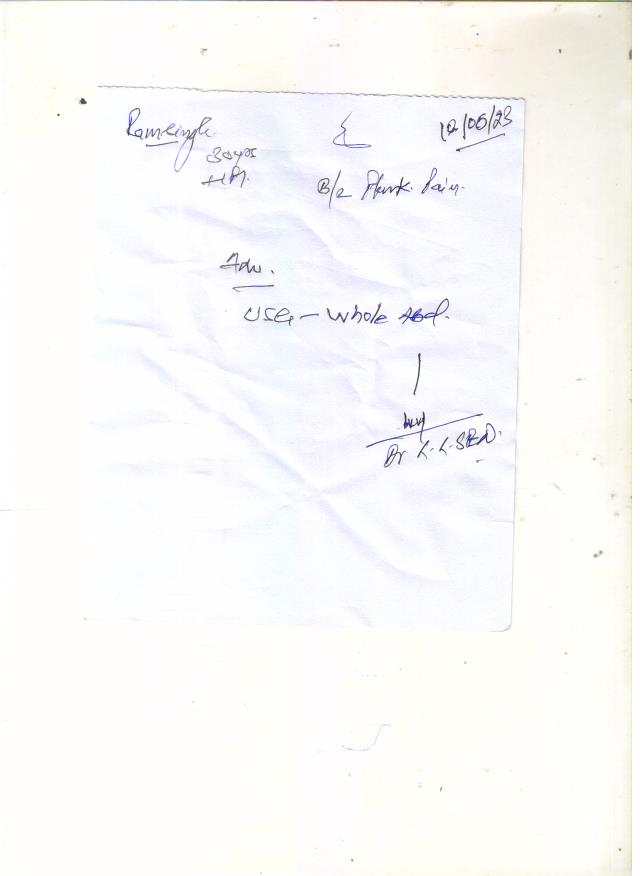 Ramsingh 10/05/23
30yrs
B/L Flank Pain.
Adv.
USG - Whole Abd.
Dr